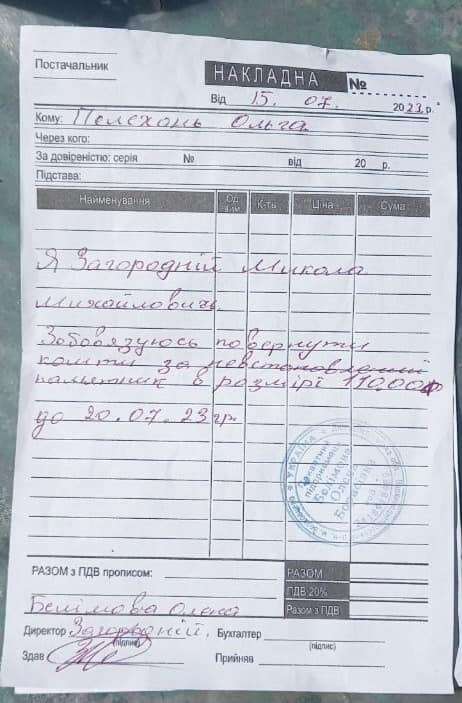 Постачальник
НАКЛАДНА №
Від 15. 07. 2023.р.
Кому: Пелехонь Ольга
Через кого:
За довіреністю: серія № від 20 р.
Підстава:
Найменування Од. вим. К-ть Ціна Сума
Я Загородній Микола
Михайлович
Зобовязуюсь повернути
кошти за невстановлений
памятник в розмірі 11000
до 20.07.23 гр.
УКРАЇНА
Белімова
Олена
РАЗОМ з ПДВ прописом: РАЗОМ
ПДВ 20%
Разом з ПДВ
Белімова Олена
Директор Загородній, Бухгалтер
(підпис) (підпис)
Здав Прийняв